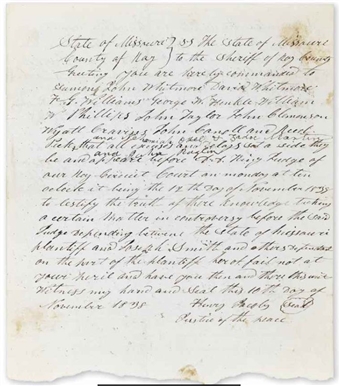 State of Missouri } SS The State of Missouri
County of Ray } to the Sheriff of Ray County
Greeting you are hereby commanded to
Summons John Whitmore David Whitmore
F. G. Williams George W. Hinkle William
W Phillips John Taylor John Clemenson
Wyatt Cravens John Corrill and Reed
Peck that all
and John
they
be and appear before A A King Judge of
our Ray Circuit Court on monday at ten
oclock it being the 12 th Day of November 1838
to testify the truth of there knowledge taking
a certain Matter in controversy before the said
Judge depending between the State of Missouri
plaintiff and Joseph Smith and others defendant
on the part of the plaintiff herof fail not at
your Peril and have you then and there this writ
Witness my hand and Seal this 10th day of
November 1838 Henry Jacobs Seal
Justice of the peace